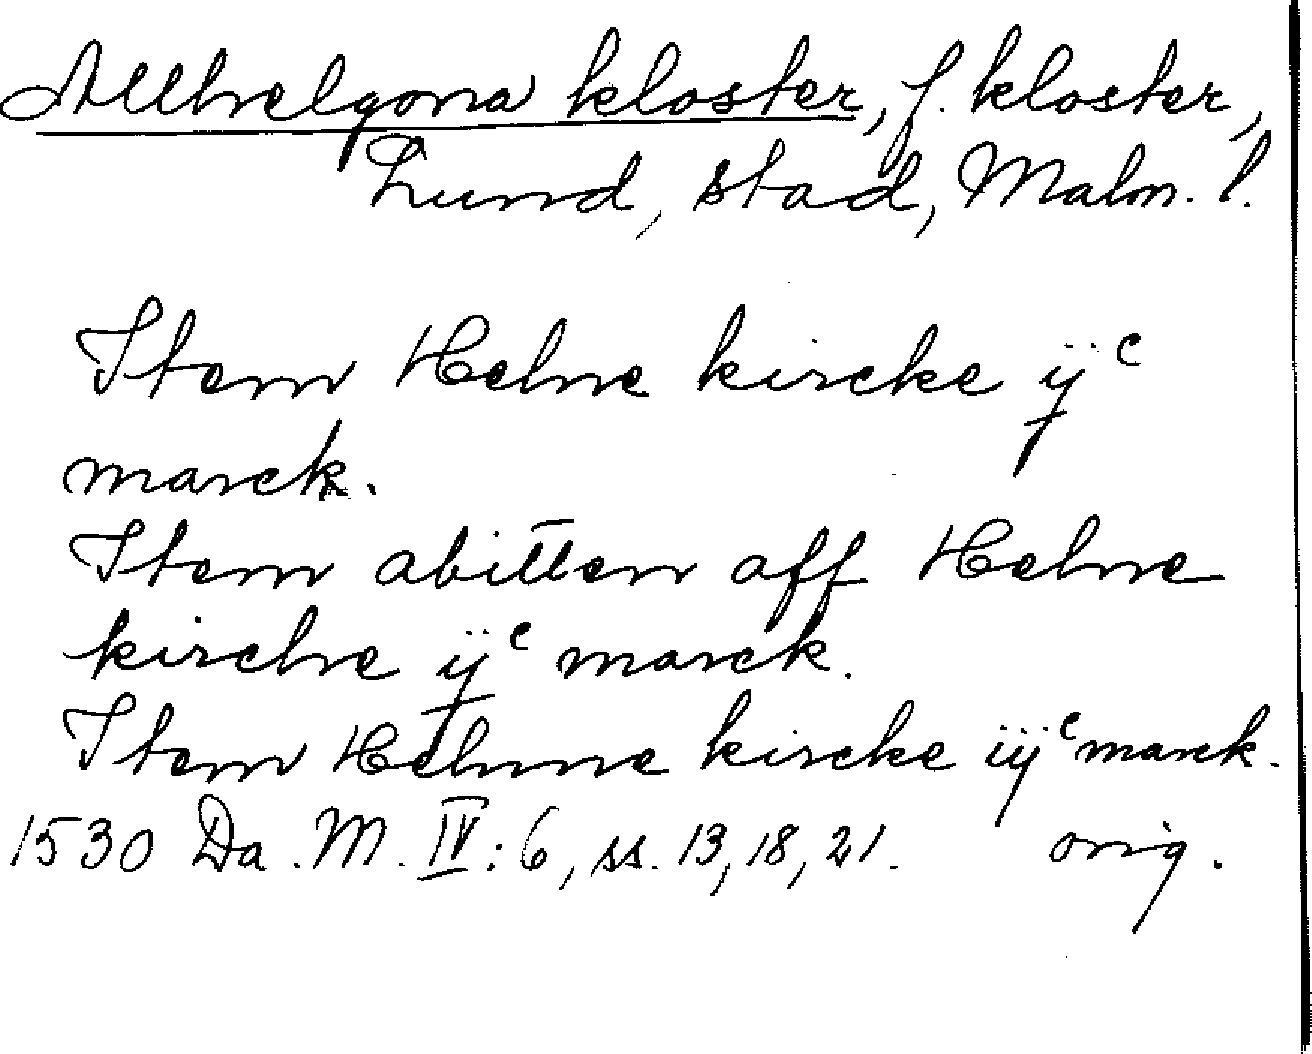 Allhelgona kloster, f. kloster,
Lund, stad, Malm. l.
Item Helne kircke ij c
marck.
Item abitten aff Helne
kirche ij c marck.
Item Helnne kircke iij c marck.
1530 Da. M. IV: 6, ss. 13, 18, 21. orig.